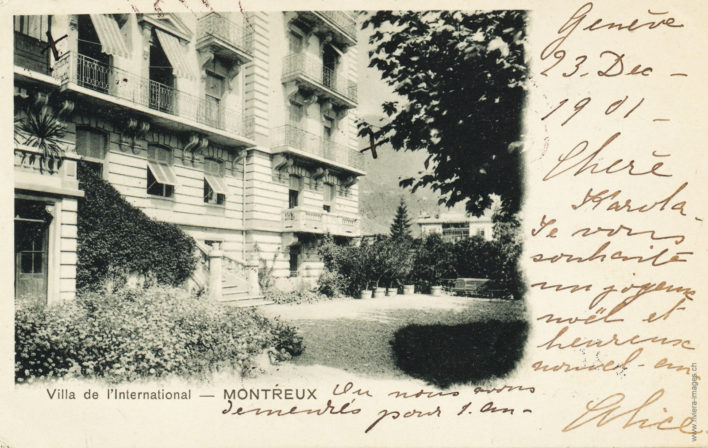 Genève
23. Dec -
1901 -
Cherè
Karola -
Je vous
souhaite
un joyeux
noël et
heureux
nouvel-an
Alice
Villa de l'International — MONTREUX
Ou nous avons
demeures pour 1. an -
www.riviera-images.ch